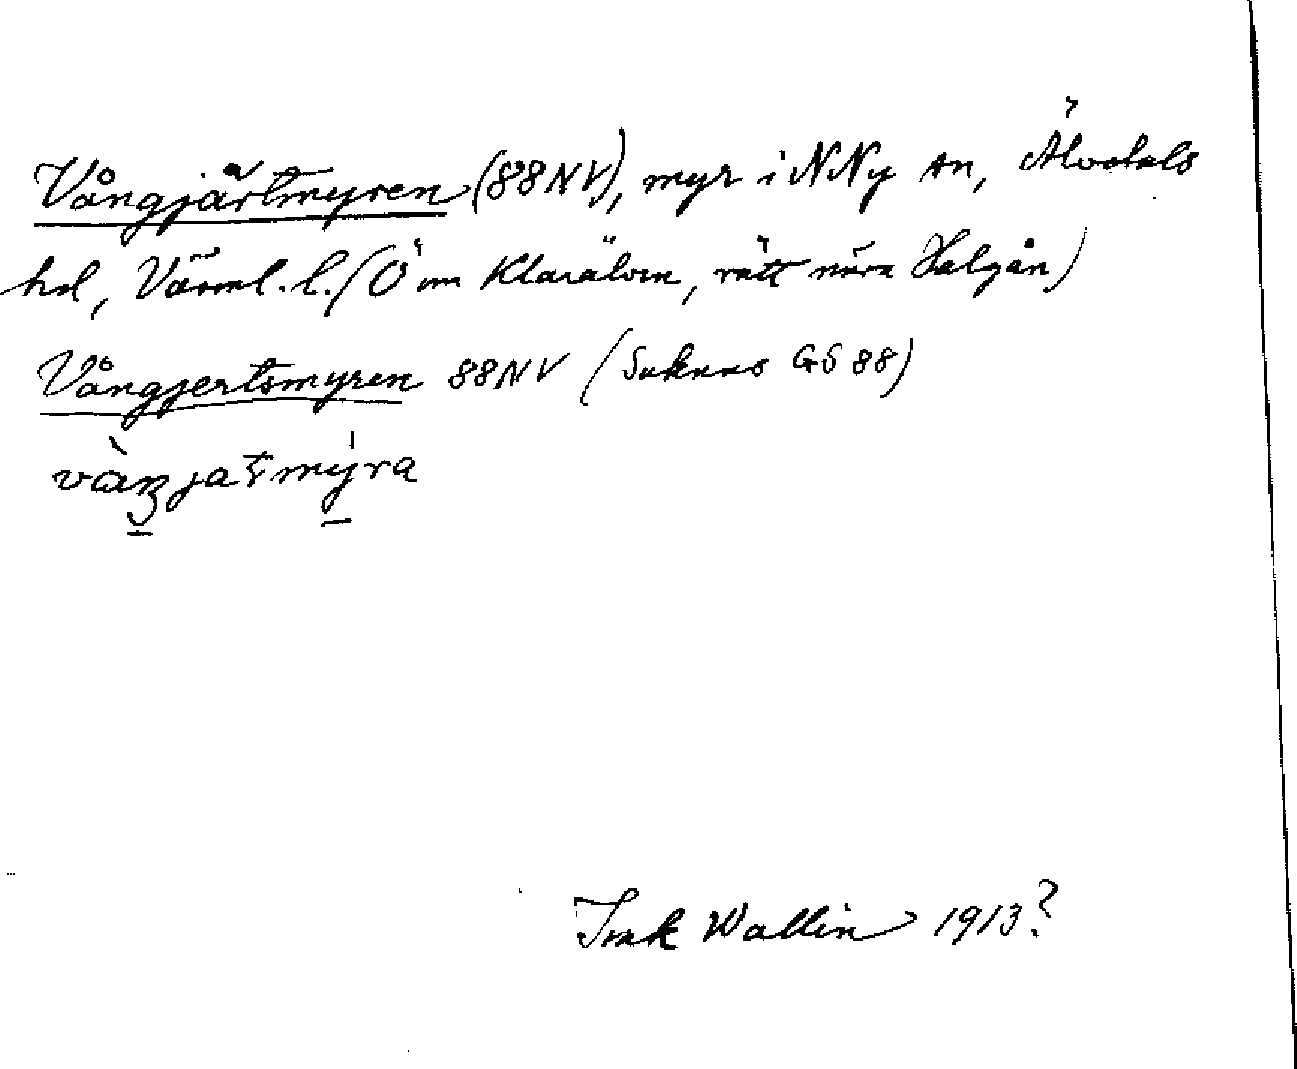 Vångjärtmyren (88NV), myr i N Ny sn, Älvdals
hd, Värml. l. (Ö om Klarälven, rätt nära Halgån)
Vångjertsmyren 88NV (Saknas GS 88)
vàŋjatmýra
Wallin 1913?